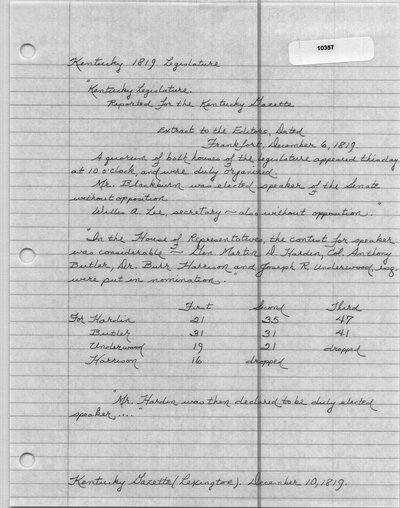 10357
Kentucky 1819 Legislature
"Kentucky Legislature.
Reported for the Kentucky Gazette
Extract to the Editors, Dated
Frankfort, December 6, 1819.
A quorum of both houses of the legislature appeared this day
at 10 o'clock, and were duly organized.
Mr. Blackburn was elected speaker of the Senate
without opposition.
Willis A. Lee, secretary — also without opposition."
"In the House of Representatives, the contest for speaker
was considerable — Gen. Martin D. Hardin, Col. Anthony
Butler, Dr. Burr Harrison and Joseph R. Underwood, esq.
were put in nomination.
First Second Third
For Hardin 21 35 47
Butler 31 31 41
Underwood 19 21 dropped
Harrison 16 dropped
"Mr. Hardin was then declared to be duly elected
speaker...."
Kentucky Gazette (Lexington). December 10, 1819.